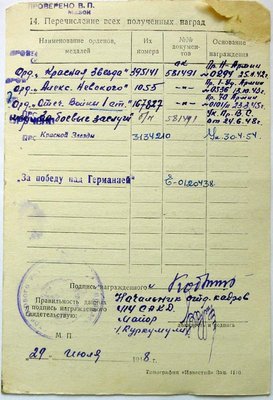 ПРОВЕРЕНО В.П.
14. Перечисление всех полученных наград
Наименование орденов, медалей | Их номера | №№ документов | Основание награждения
Орд. „Красная Звезда" 395141 | 581491 | Пр. Армии № 0294 25.4.42 г.
Орд. „Алекс. Невского" 1055 | -"- | Армии № 0336 43 г.
Орд. „Отеч. Войны I ст." 167827 | -"- | Армии 23.3.45 г.
За боевые заслуги б/н | 581491 | Ук. Пр. В. С. от 24.6.48 г.
Красной Звезды 3134210 | Ук. 30.4.54 г.
„За победу над Германией" | Е-0120438
Подпись награжденного
Правильность данных
и подпись награжденного
свидетельствую:
Начальник отд. кадров
майор
/Куркумулия/
М. П.
29 июля 1948 г.
Типография «Известий» Зак.